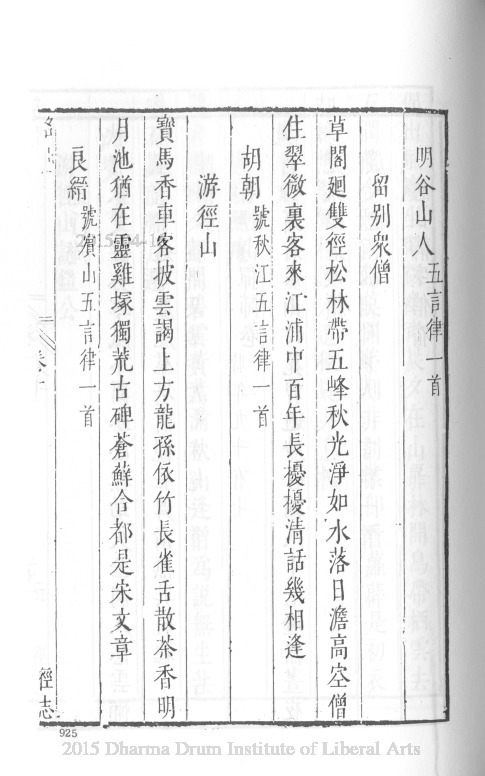 明谷山人五言律一首
留別衆僧
草閣迴雙徑松林帶五峰秋光淨如水落日澹高空僧
住翠微裏客來江浦中百年長擾擾清話幾相逢
胡朝號秋江五言律一首
游徑山
寶馬香車客披雲謁上方龍孫依竹長雀舌散茶香明
月池猶在靈雞塚獨荒古碑蒼蘚合都是宋文章
良縉號濱山五言律一首
徑志
925
2015 Dharma Drum Institute of Liberal Arts